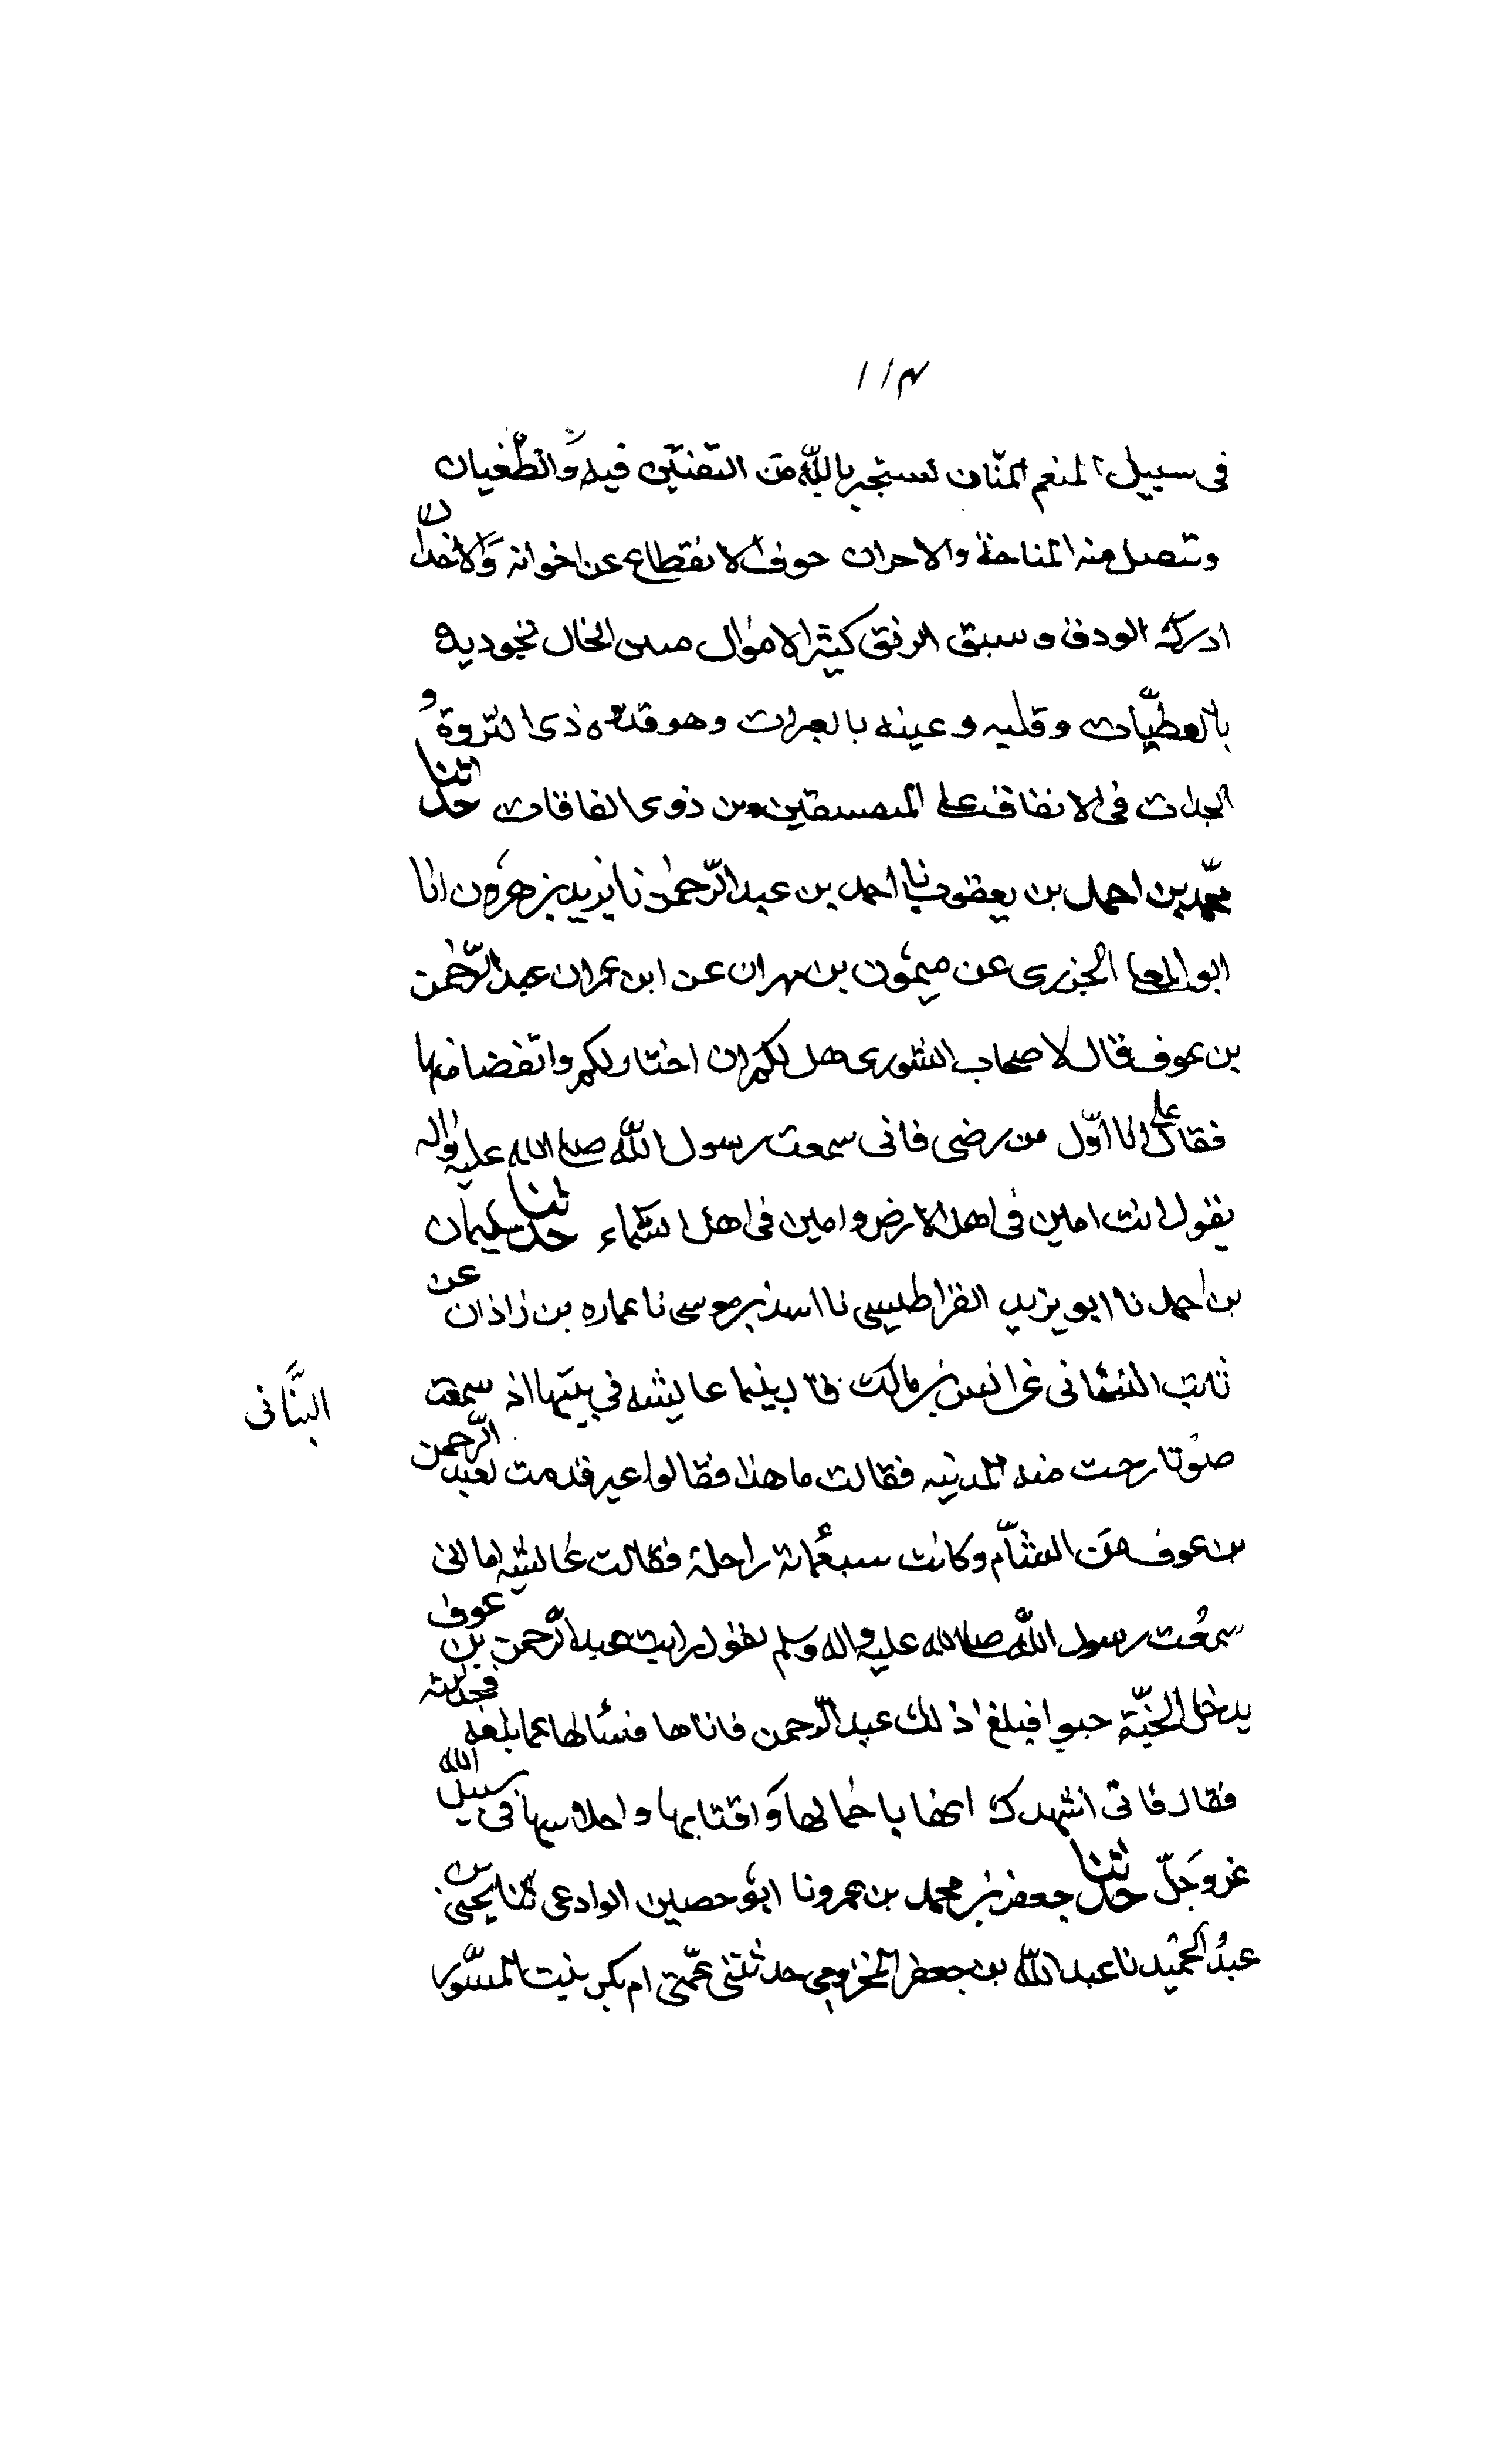 ١١٤
فى سبيل المنعم المنّان يستجير بالله من التفتين فيه والطّغيان
وتتصل منه المناحة والاحزان خوف الانقطاع عن اخوانه والاخدان
ادرك الودق وسبق الرنق كثير الاموال متين الحال تجود يده
بالعطيّات وقلبه وعينه بالعبرات وهو قدوة ذى الثروة و
الجدات فى الانفاق على المتسقين من ذوى الفاقات حدثنا
محمّد بن احمد بن يعقوب نا احمد بن عبد الرّحمٰن نا يزيد بن هرون انا
ابو المعلى الجزرى عن ميمون بن مهران عن ابن عمر ان عبد الرّحمٰن
بن عوف قال لاصحاب الشورى هل لكم ان اختار لكم واتفضا منها
فقال على انا اوّل من رضى فانى سمعت رسول الله صلى الله عليه واله
يقول انت امين فى اهل الارض وامين فى اهل السّماء حدثنا سليمان
بن احمد نا ابو يزيد القراطيسى نا اسد بن موسى نا عماره بن زاذان عن
ثابت البنانى عن انس بن مالك قا بينما عايشه فى بيتها اذ سمعت
البنّانى
صوتا رجت منه المدينه فقالت ما هذا فقالوا عير قدمت لعبد الرّحمن
بن عوف من الشّام وكانت سبعمائة راحلة فقالت عايشه اما انى
سمعت رسول الله صلى الله عليه واله وسلم يقول رايت عبد الرّحمن بن عوف
يدخل الجنّة حبوا فبلغ ذلك عبد الرّحمن فاتاها فسئالها عما بلغه فحدثته
فقال فانى اشهدك انها باحمالها واقتابها واحلاسها فى سبيل الله
عز وجلّ حدثنا جعفر بن محمد بن عمرو نا ابو حصين الوادعى ثنا يحيى بن
عبد الحميد نا عبد الله بن جعفر المخرومى حدثتنى عمّتى ام بكر بنت المسّور